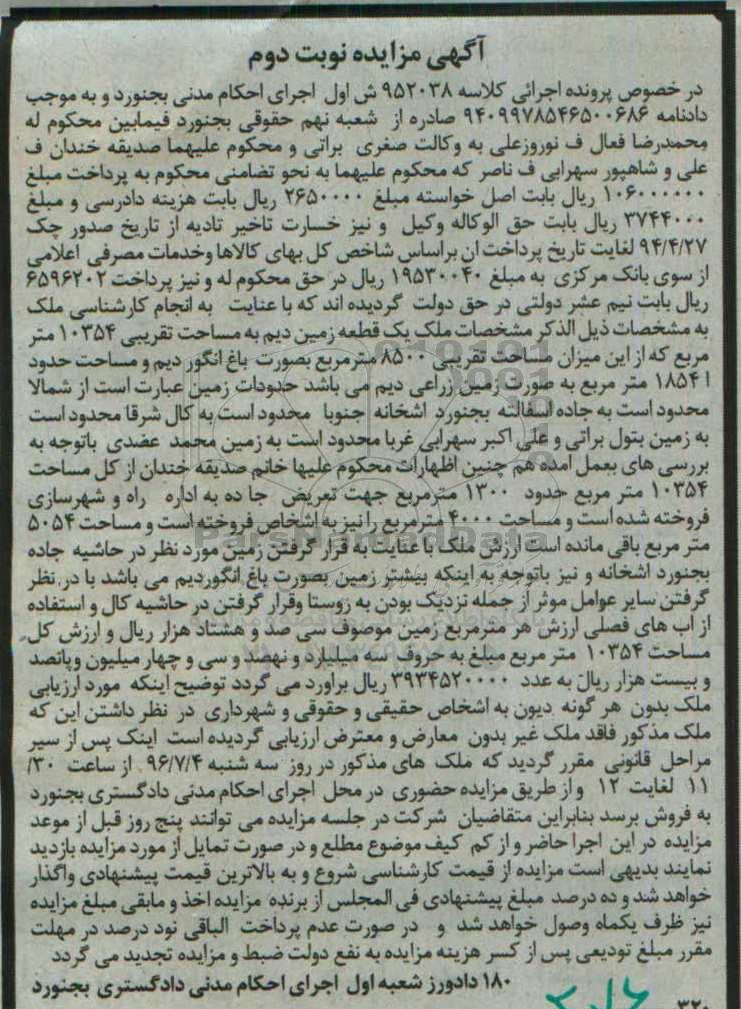 آگهی مزایده نوبت دوم
در خصوص پرونده اجرائی کلاسه ۹۵۲۰۳۸ ش اول اجرای احکام مدنی بجنورد و به موجب
دادنامه ۹۴۰۹۹۷۸۵۴۶۵۰۰۶۸۶ صادره از شعبه نهم حقوقی بجنورد فیمابین محکوم له
محمدرضا فعال ف نوروزعلی به وکالت صغری براتی و محکوم علیهما صدیقه خندان ف
علی و شاهپور سهرابی ف ناصر که محکوم علیهما به نحو تضامنی محکوم به پرداخت مبلغ
۱۰۶۰۰۰۰۰۰ ریال بابت اصل خواسته مبلغ ۲۶۵۰۰۰۰ ریال بابت هزینه دادرسی و مبلغ
۳۷۴۴۰۰۰ ریال بابت حق الوکاله وکیل و نیز خسارت تاخیر تادیه از تاریخ صدور چک
۹۴/۴/۲۷ لغایت تاریخ پرداخت ان براساس شاخص کل بهای کالاها وخدمات مصرفی اعلامی
از سوی بانک مرکزی به مبلغ ۱۹۵۳۰۰۴۰ ریال در حق محکوم له و نیز پرداخت ۶۵۹۶۲۰۲
ریال بابت نیم عشر دولتی در حق دولت گردیده اند که با عنایت به انجام کارشناسی ملک
به مشخصات ذیل الذکر مشخصات ملک یک قطعه زمین دیم به مساحت تقریبی ۱۰۳۵۴ متر
مربع که از این میزان مساحت تقریبی ۸۵۰۰ مترمربع بصورت باغ انگور دیم و مساحت حدود
۱۸۵۴ متر مربع به صورت زمین زراعی دیم می باشد حدودات زمین عبارت است از شمالا
محدود است به جاده اسفالته بجنورد اشخانه جنوبا محدود است به کال شرقا محدود است
به زمین بتول براتی و علی اکبر سهرابی غربا محدود است به زمین محمد عضدی باتوجه به
بررسی های بعمل امده هم چنین اظهارات محکوم علیها خانم صدیقه خندان از کل مساحت
۱۰۳۵۴ متر مربع حدود ۱۳۰۰ مترمربع جهت تعریض جا ده به اداره راه و شهرسازی
فروخته شده است و مساحت ۴۰۰۰ مترمربع را نیز به اشخاص فروخته است و مساحت ۵۰۵۴
متر مربع باقی مانده است ارزش ملک با عنایت به قرار گرفتن زمین مورد نظر در حاشیه جاده
بجنورد اشخانه و نیز باتوجه به اینکه بیشتر زمین بصورت باغ انگوردیم می باشد با در نظر
گرفتن سایر عوامل موثر از جمله نزدیک بودن به روستا وقرار گرفتن در حاشیه کال و استفاده
از اب های فصلی ارزش هر مترمربع زمین موصوف سی صد و هشتاد هزار ریال و ارزش کل
مساحت ۱۰۳۵۴ متر مربع مبلغ به حروف سه میلیارد و نهصد و سی و چهار میلیون وپانصد
و بیست هزار ریال به عدد ۳۹۳۴۵۲۰۰۰۰ ریال براورد می گردد توضیح اینکه مورد ارزیابی
ملک بدون هر گونه دیون به اشخاص حقیقی و حقوقی و شهرداری در نظر داشتن این که
ملک مذکور فاقد ملک غیر بدون معارض و معترض ارزیابی گردیده است اینک پس از سیر
مراحل قانونی مقرر گردید که ملک های مذکور در روز سه شنبه ۹۶/۷/۴ از ساعت ۳۰/
۱۱ لغایت ۱۲ و از طریق مزایده حضوری در محل اجرای احکام مدنی دادگستری بجنورد
به فروش برسد بنابراین متقاضیان شرکت در جلسه مزایده می توانند پنج روز قبل از موعد
مزایده در این اجرا حاضر و از کم کیف موضوع مطلع و در صورت تمایل از مورد مزایده بازدید
نمایند بدیهی است مزایده از قیمت کارشناسی شروع و به بالاترین قیمت پیشنهادی واگذار
خواهد شد و ده درصد مبلغ پیشنهادی فی المجلس از برنده مزایده اخذ و مابقی مبلغ مزایده
نیز ظرف یکماه وصول خواهد شد و در صورت عدم پرداخت الباقی نود درصد در مهلت
مقرر مبلغ تودیعی پس از کسر هزینه مزایده به نفع دولت ضبط و مزایده تجدید می گردد
۱۸۰ دادورز شعبه اول اجرای احکام مدنی دادگستری بجنورد
۳۲۰
ParsNamadData